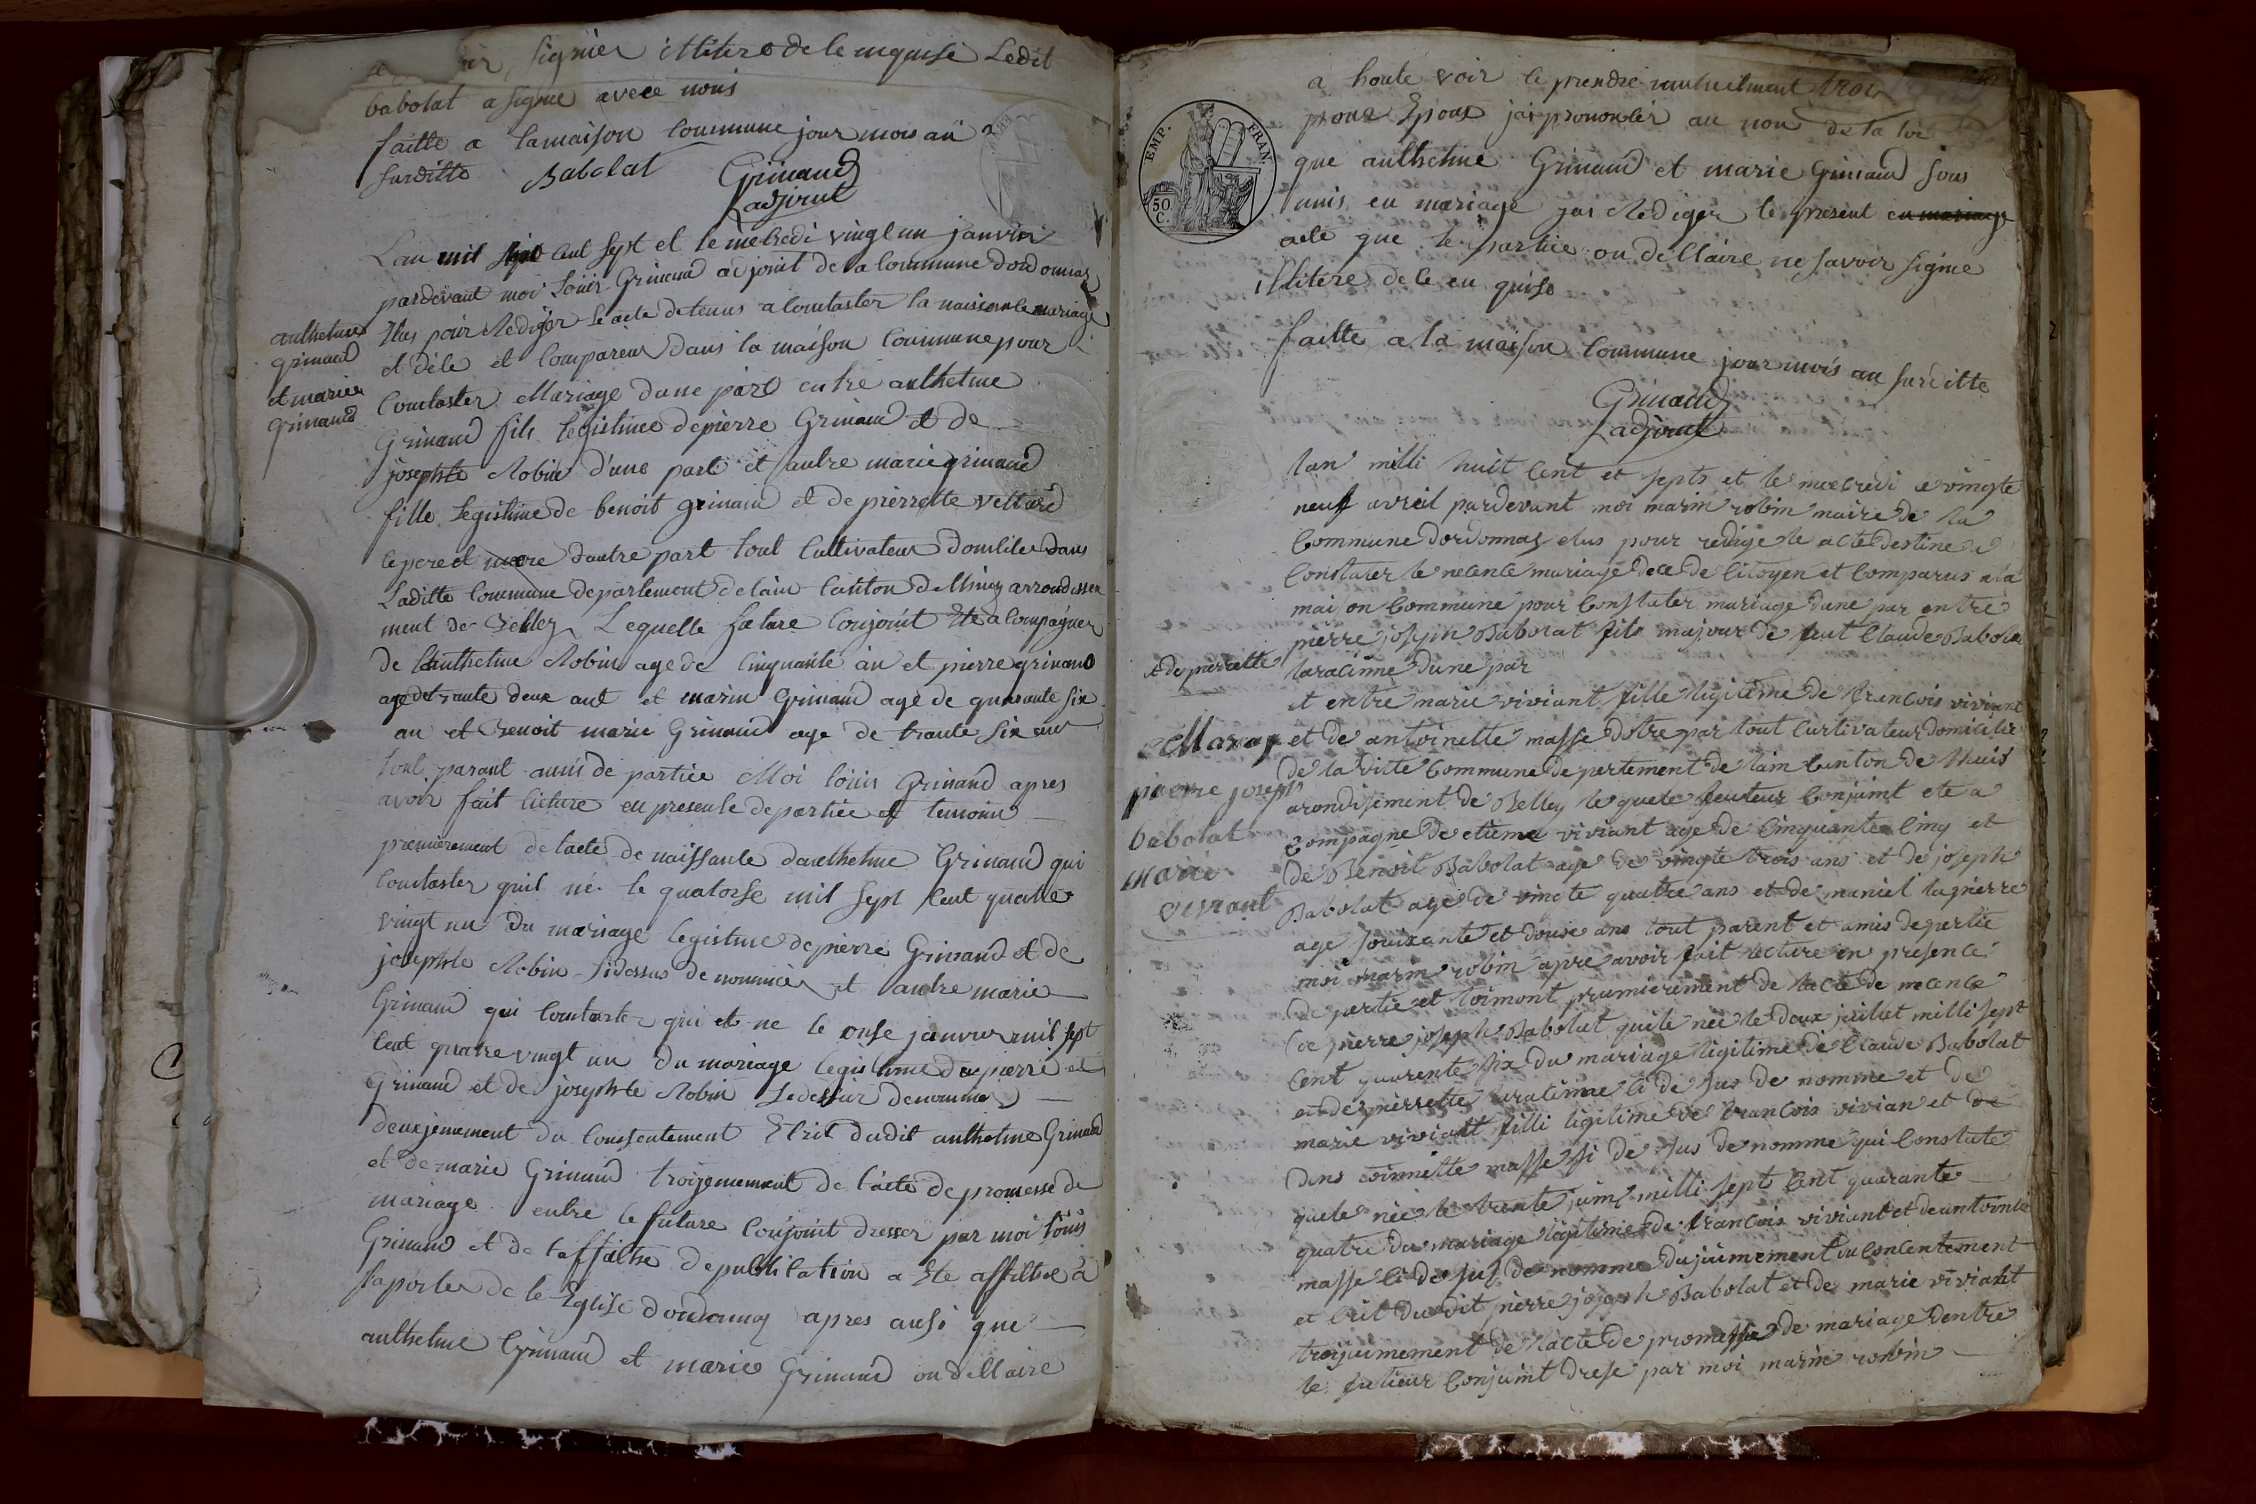 signer illitere de le enquise Ledit
babolat a signé avece nous
faitte a lamaison Commune jour mois an
surditte Babolat Grinand
Ladjoint
L'an mil cent sept et le mecredi vingt un janvier
pardevant moi Louis Grinand adjoint de la Commune dordonnaz
anthelme
grinand
et marie
grinand
Elus pour Rediger le acte detenus a Contaster la naisance mariage
et déle et Compareus dans la maison Commune pour
Contaster Mariage dune part entre anthelme
Grinand fils legistime depierre Grinand et de
josephte Robin d'une part et autre marie grinand
fille legistime de benoit grinand et de pierrette Vettard
le pere et mere dautre part tout Cultivateur domilile dans
Laditte Commune departement delain Canton de lhuey arrondissse
ment de Belley Lequelle future Conjoint Eté a Compagner
de anthelme Robin age de Cinquante an et pierre grinand
age de trante deux ant et marin Grinand age de quarante six
an et Benoit marie Grinand age de trante six an
tout parant amis de partiee Moi louis Grinand apres
avoir fait licture en presente de partiee et temoins
premierement de lacte de naissante danthelme Grinand qui
Contaster quil né le quatorse mil sept Cent quatre
vingt un du mariage legistime de pierre Grinand et de
josephte Robin sidessus denommés et autre marie
Grinand qui Contaster qui et ne le onse janvier mil sept
Cent quatre vingt un du mariage legistime de pierre et
Grinand et de josephte Robin Sedessur denommé
deuxjemement du Conssentement Ecrit dudit anthelme Grinand
et de marie Grinand troijemement de lacte de promesse de
mariage entre le future Conjoint dresser par moi louis
Grinand et de laffaithe de publilation a Eté affithée a
laporte de le Eglise dordonnaz apres ausi que
anthelme Grinand et marie Grinand on dellaire
a houte voix le prendre mutuelment trois
pour Epoux jai prononcer au nom de la loi
EMP. FRAN.
50
C.
que anthelme Grinand et marie Grinand sons
unis en mariage jai Rediger le present en mariage
acte que le partiee on dellaire ne savoir signie
illitere de le en quise
faitte a la maison Commune jour mois an surditte
Grinand
Ladjoint
lan milli huit Cent et septs et le mecredi vingte
neuf avreil pardevant moi marin robin maire de la
Commune dordonnaz elus pour redige le acte destine a
Constater le necence mariage dece de Citoyen et Comparus a la
mai on Commune pour Constater mariage dune par entre
pierre joseph Babolat fils majour de feut Claude Babolat
et de pierrette
laracinne dune par
et entre marie viviant fille ligitime de francois viviant
Mariage
pierre joseph
babolat
marie
viviant
et de antoinette masse dotre par tout Curtivateur domicilie
de la ditte Commune depertement de lain Canton de lhuis
arondisiment de Belley le quele feuteur Conjoint ete a
Compagne de etiene viviant age de Cinquante Cinq et
de Benoit Babolat age de vingte trois ans et de joseph
Babolat age de vincte quattre ans et de maniel lapierre
age souixante et douse ans tout parent et amis de partie
moi marin robin apre avoir fait lecture en presence
de partie et toimont prumierement de lacte de necence
de pierre joseph Babolat quile née le deux juillet milli sept
Cent quarente six du mariage ligitime de Claude Babolat
et de pierrette laracinne ci de sus de nomme et de
marie viviant filli ligitime de francois vivian et de
dans toinnette masse si de sus de nomme qui Constate
quele née le trente juin milli sept Cent quarante
quatre du mariage ligitime de francois viviant et de antointe
masse ci de sus de nomme dujiemement du Concentement
et Crit du dit pierre joseph Babolat et de marie viviant
troijiemement de lacte de promesse de mariage dentre
le futieur Conjoint drese par moi marin robin